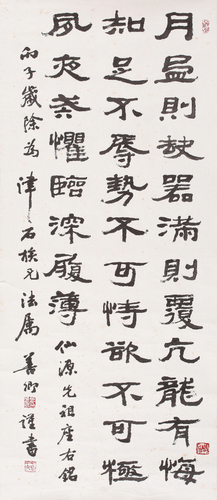 月盈則缺器滿則覆亢龍有悔
知足不辱勢不可恃欲不可極
夙夜恭懼臨深履薄 仙源先祖座右銘
丙子歲除為 石族兄法屬 善謹書